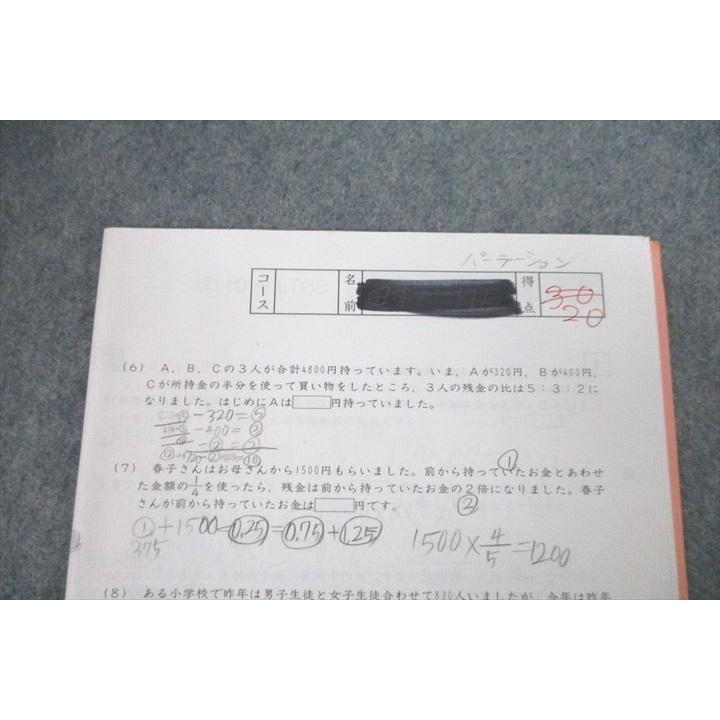 パーテーション
コース 名前 得点 30
20
(6) A，B，Cの3人が合計4800円持っています。いま，Aが320円，Bが400円，
Cが所持金の半分を使って買い物をしたところ，3人の残金の比は5：3：2に
なりました。はじめにAは□円持っていました。
-320=⑤
-400=③
-②=②
(7) 春子さんはお母さんから1500円もらいました。前から持っていたお金とあわせ
①
た金額の1/4を使ったら，残金は前から持っていたお金の2倍になりました。春子
さんが前から持っていたお金は□円です。
②
①+1500-0.25=0.75+1.25
375
1500×4/5=1200
(8) ある小学校で昨年は男子生徒と女子生徒合わせて830人いましたが，今年は昨年